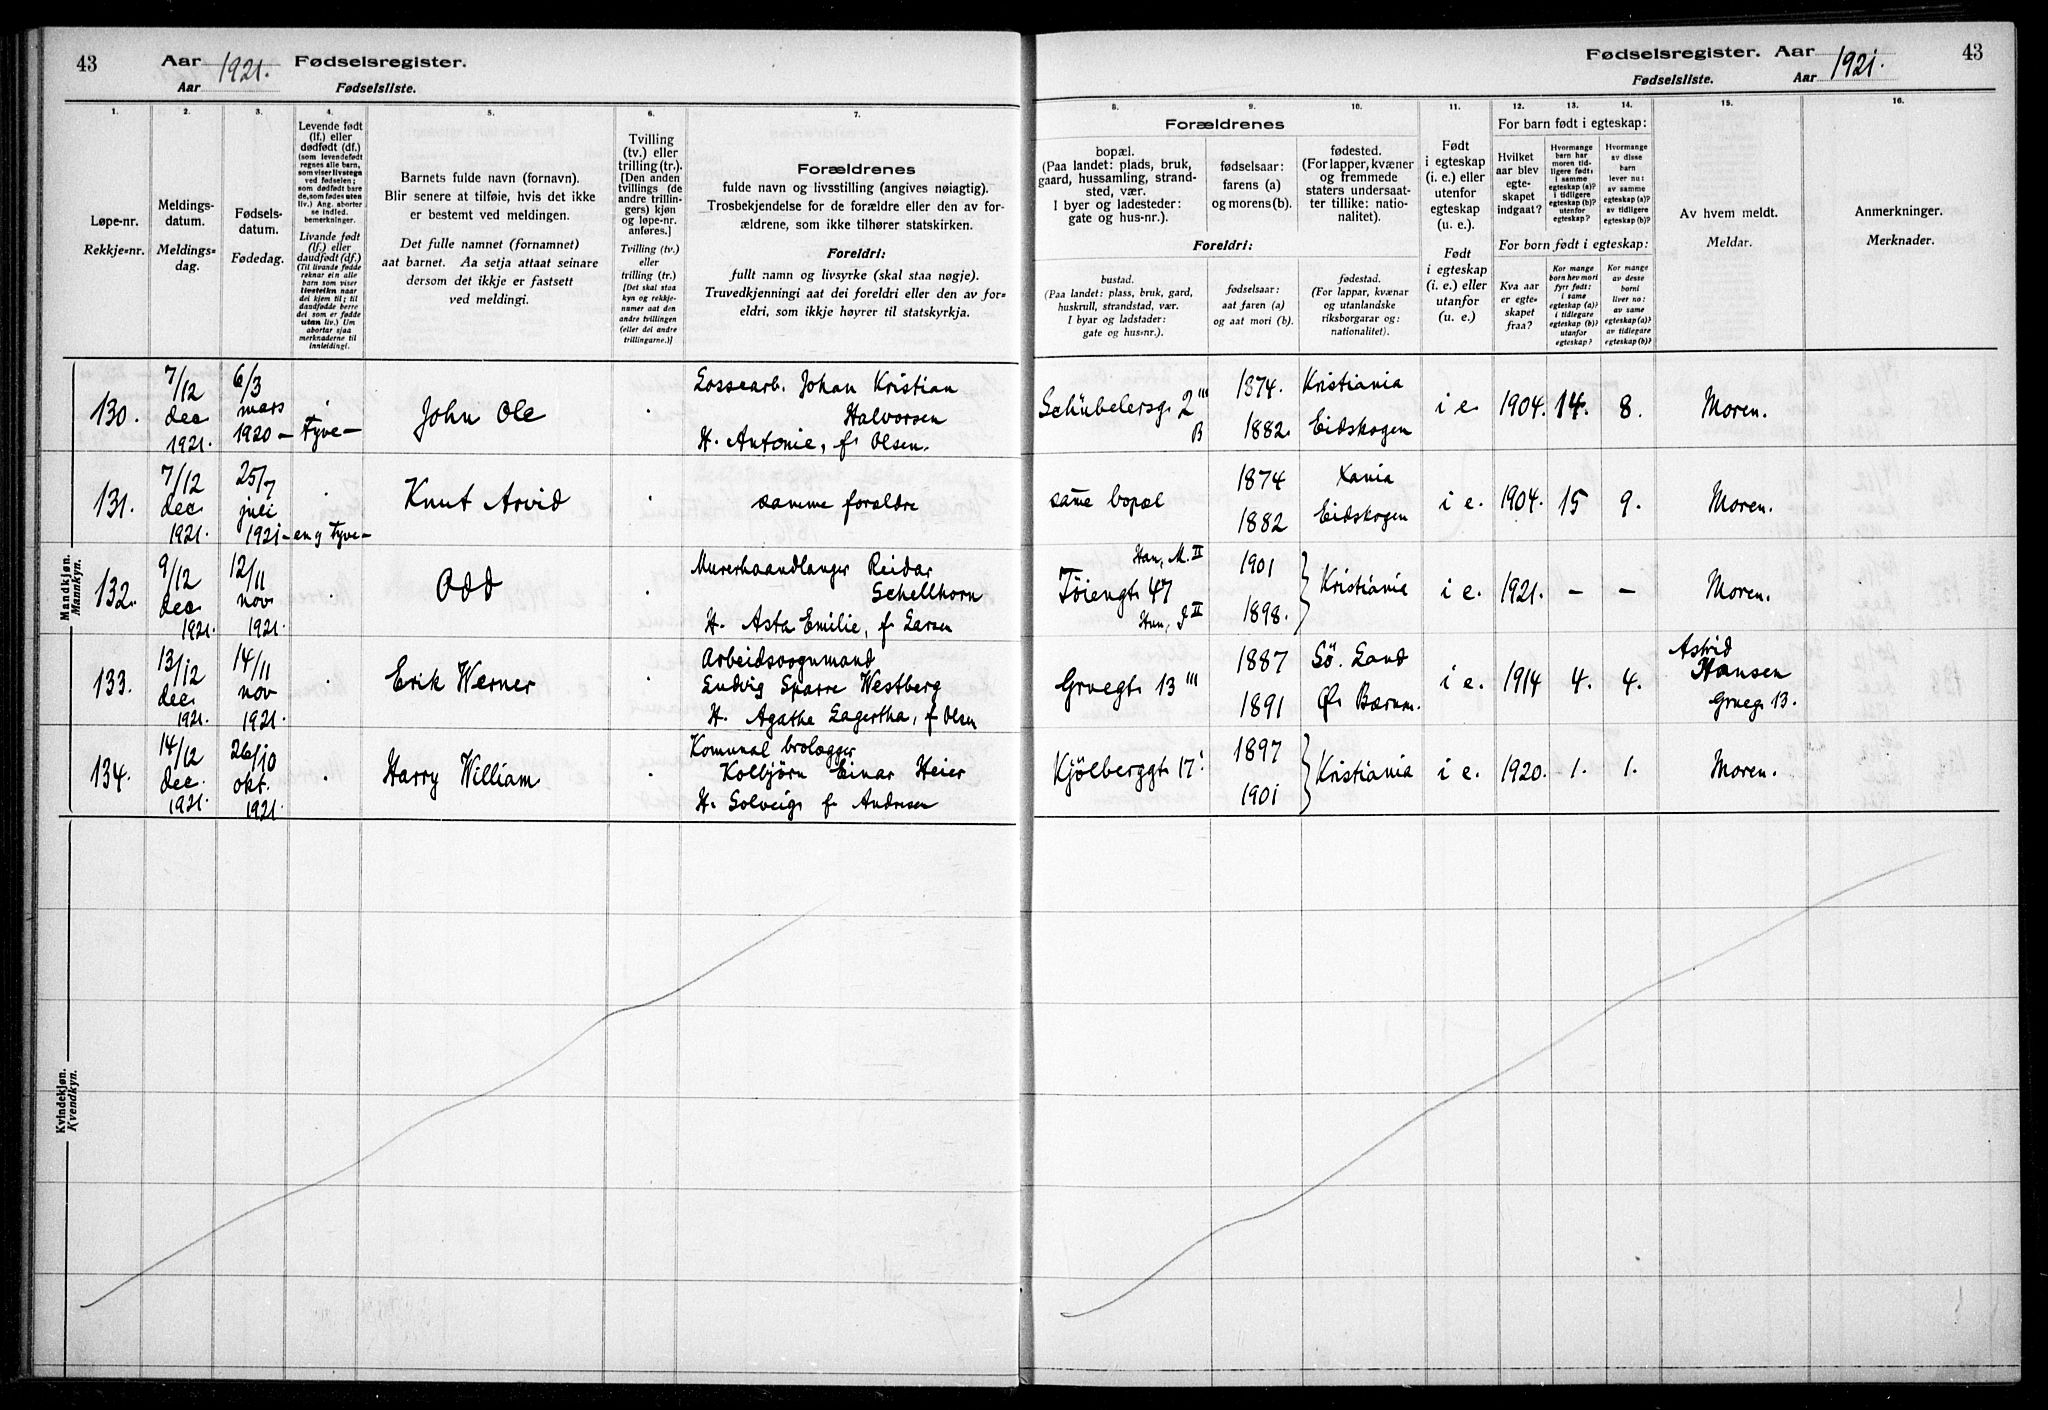 43
Aar 1921.
Aar
Fødselsregister.
Fødselsliste.
Fødselsregister. Aar 1921.
Fødselsliste. Aar
43
1. 2. 3. 4. 5. 6. 7.
Løpe-nr.
Rekkje-nr.
Meldings-
datum.
Meldings-
dag.
Fødsels-
datum.
Fødedag.
Levende født
(lf.) eller
dødfødt (df.)
(som levendefødt
regnes alle barn,
som viser livstegn
ved fødselen;
som dødfødt bare
de, som fødes uten
liv.) Ang. aborter
se indled.
bemerkninger.
Livande født
(lf.) eller
daudfødt (df.)
(Til livande fødde
reknar ein alle
barn som viser
livsteikn naar
dei kjem til; til
daudfødde berre
dei som er fødde
utan liv.) Um
abortar sjaa
merknaderne til
innleidingi.
Barnets fulde navn (fornavn).
Blir senere at tilføie, hvis det ikke
er bestemt ved meldingen.
Det fulle namnet (fornamnet)
aat barnet. Aa setja attaat seinare
dersom det ikkje er fastsett
ved meldingi.
Tvilling
(tv.) eller
trilling (tr.).
[Den anden
tvillings (de
andre trillin-
gers) kjøn
og løpe-nr.
anføres.]
Tvilling (tv.)
eller
trilling (tr.)
[Det skal staa
kyn og rekkje-
numer aat den
andre tvillingen
(eller dei andre
trillingarne.)]
Forældrenes
fulde navn og livsstilling (angives nøiagtig).
Trosbekjendelse for de forældre eller den av for-
ældrene, som ikke tilhører statskirken.
Foreldri:
fullt namn og livsyrke (skal staa nøgje).
Truvedkjenningi aat dei foreldri eller den av for-
eldri, som ikkje høyrer til statskyrkja.
8. 9. 10. 11. 12. 13. 14. 15. 16.
Forældrenes
bopæl.
(Paa landet: plads, bruk,
gaard, hussamling, strand-
sted, vær.
I byer og ladesteder:
gate og hus-nr.).
fødselsaar:
farens (a)
og morens (b).
fødested.
(For lapper, kvæner
og fremmede
staters undersaat-
ter tillike: natio-
nalitet).
Foreldri:
bustad.
(Paa landet: plass, bruk, gard,
huskrull, strandstad, vær.
I byar og ladstader:
gate og hus-nr.).
fødselsaar:
aat faren (a)
og aat mori (b).
fødestad.
(For lappar, kvænar
og utanlandske
riksborgarar og:
nationalitet).
Født
i egteskap
(i. e.) eller
utenfor
egteskap
(u. e.).
Født
i egteskap
(i. e.) eller
utanfor
(u. e.)
For barn født i egteskap:
Hvilket
aar blev
egte-
skapet
indgaat?
Hvormange
barn har
moren tid-
ligere født:
i samme
egteskap (a)?
i tidligere
egteskap (b)?
utenfor
egteskap?
Hvormange
av disse
barn
lever nu:
av samme
egteskap (a)?
av tidligere
egteskap (b)?
For born født i egteskap:
Kva aar
er egte-
skapet
fraa?
Kor mange
born hev mori
fyrr født:
i same
egteskap (a)?
i tidlegare
egteskap (b)?
utanfor
egteskap?
Kor mange
av desse
borni
liver no:
av same
egteskap (a)?
av tidlegare
egteskap (b)?
Av hvem meldt.
Meldar.
Anmerkninger.
Merknader.
Mandkjøn.
Mannkyn.
130. 7/12 dec. 1921. 6/3 mars 1920 – Tyve – John Ole
Lossearb. Johan Kristian
Halvorsen
H. Antonie, f. Olsen.
Schübelersg. 2 III B 1874. 1882. Kristiania Eidskogen i e. 1904. 14. 8. Moren.
131. 7/12 dec. 1921. 25/7 juli 1921 – en og Tyve – Knut Arvid
samme forældre
same bopæl 1874 1882 Xania Eidskogen i e. 1904. 15 9. Moren.
132. 9/12 dec. 1921. 12/11 nov 1921. Odd
Murerhaandlanger Reidar
Schellhorn
H. Asta Emilie, f. Larsen
Han, M. II
Tøiengt. 47
Hun, J II
1901 1898. Kristiania i e. 1921. – – Moren.
133. 13/12 dec. 1921. 14/11 nov 1921. Erik Werner
Arbeidsvognmand
Ludvig Sparre Westberg
H. Agathe Lagertha, f. Olsen
Gruegt. 13 III 1887 1891 Sö. Land Ø. Bærum. i e. 1914 4. 4. Astrid Hansen Grueg. 13.
134. 14/12 dec. 1921. 26/10 okt. 1921. Harry William
Komunal brolægger
Kolbjörn Einar Heier
H. Solveig f. Andresen
Kjölberggt. 17 I 1897 1901 Kristiania i e. 1920. 1. 1. Moren.
Kvindekjøn.
Kvendkyn.